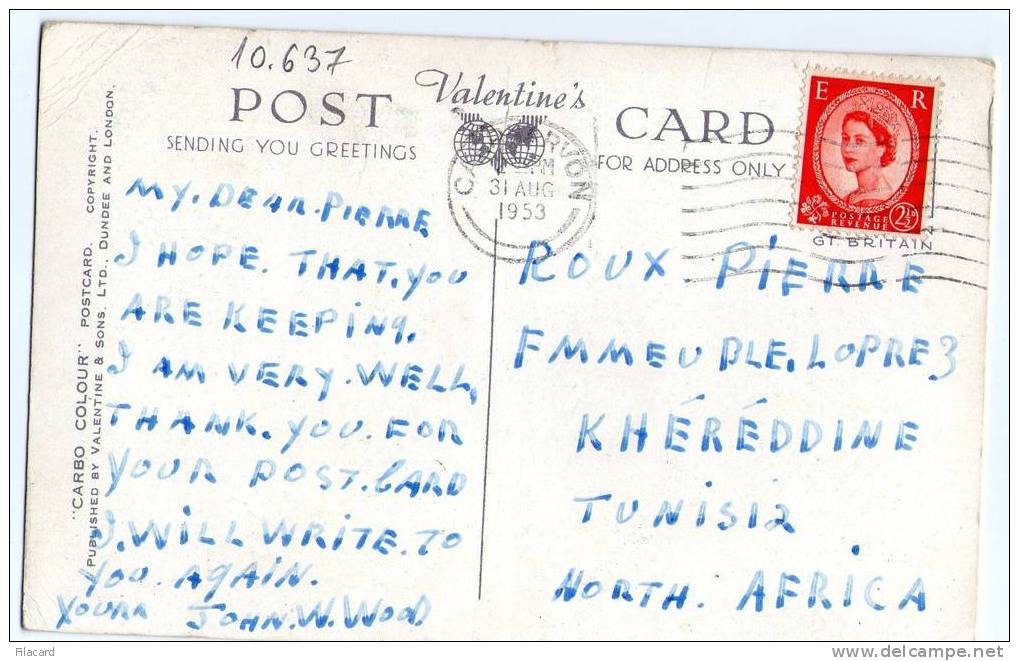 10.637
Valentine's
POST CARD
SENDING YOU GREETINGS
FOR ADDRESS ONLY
E R
POSTAGE
REVENUE
2½d
GT. BRITAIN
PM
31 AUG
1953
"CARBO COLOUR" POSTCARD. COPYRIGHT.
PUBLISHED BY VALENTINE & SONS. LTD., DUNDEE AND LONDON.
MY. DEAR. PIERRE
I HOPE. THAT, YOU
ARE KEEPING.
I AM VERY. WELL,
THANK. YOU. FOR
YOUR POST. CARD
I. WILL WRITE. TO
YOU. AGAIN.
YOURR JOHN. W. WOOD
ROUX PIERRE
FMMEUBLE. LOPRE3
KHÉRÉDDINE
TUNISIA
NORTH. AFRICA
Filacard
www.delcampe.net